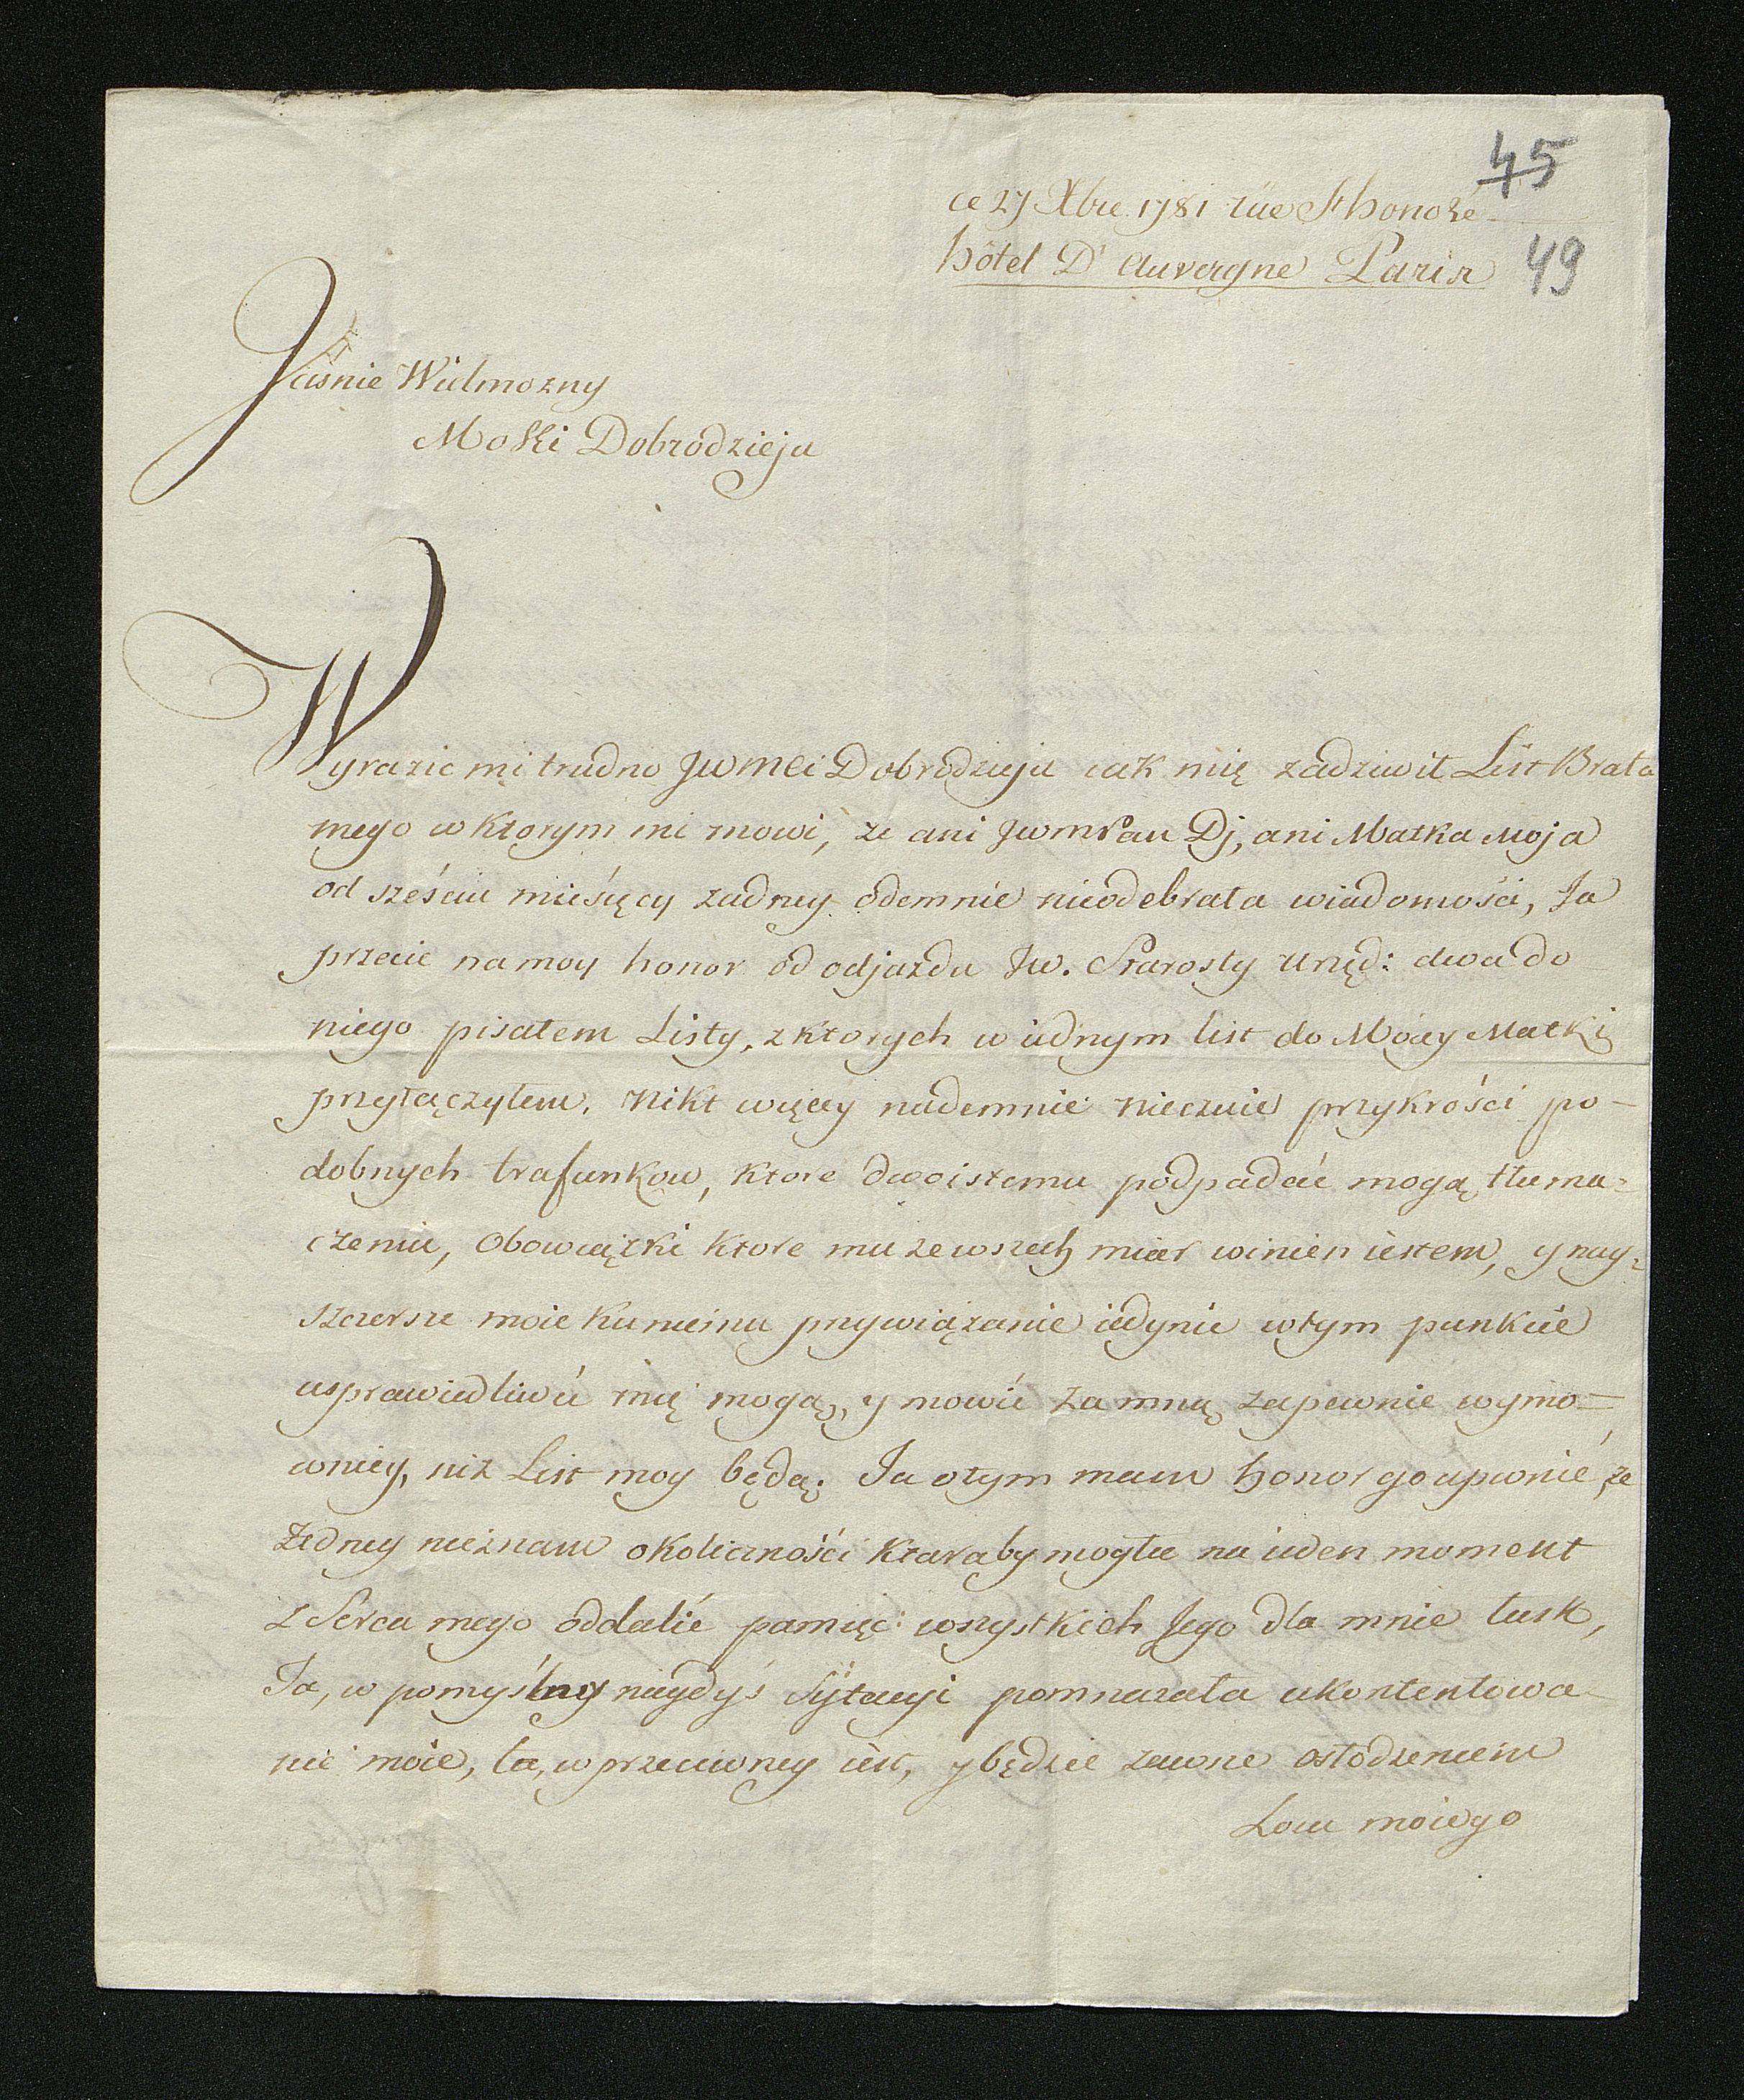 45
ce 27 Xbre 1781 rüe St honoré
hôtel D'Auvergne Paris
49
Jaśnie Wielmozny
Mości Dobrodzieju
Wyrazic mi trudno JWMci Dobrodzieju iak mię zadziwił List Brata
mego w ktorym mi mowi, ze ani JWmPan Dj, ani Matka Moja
od sześciu miesięcy zadney odemnie nieodebrała wiadomości, Ja
przecie na moy honor od odjazdu Jw. Starosty Uzęd: dwa do
niego pisałem Listy, z ktorych w iednym list do Moiey Matki
przyłączyłem. Nikt więcey nademnie nieczuie przykrości po-
dobnych trafunkow, ktore dwoistemu podpadać mogą tłuma=
czeniu, Obowiązki ktore mu ze wszech miar winien iestem, y nay=
szczersze moie ku niemu przywiązanie iedynie w tym punkcie
usprawiedliwić mię mogą, y mowić za mną zapewnie wymo=
wniey, niz List moy będą. Ja o tym mam honor go upewnić, ze
Zedney nieznam okoliczności ktaraby mogła na ieden moment
z Serca mego oddalić pamięć wszystkich Jego dla mnie łask,
Ta, w pomyślney niegdyś Sytacyi pomnazała ukontentowa
nie moie, ta, w przeciwney iest, y będzie zawsze osłodzeniem
Losu moiego